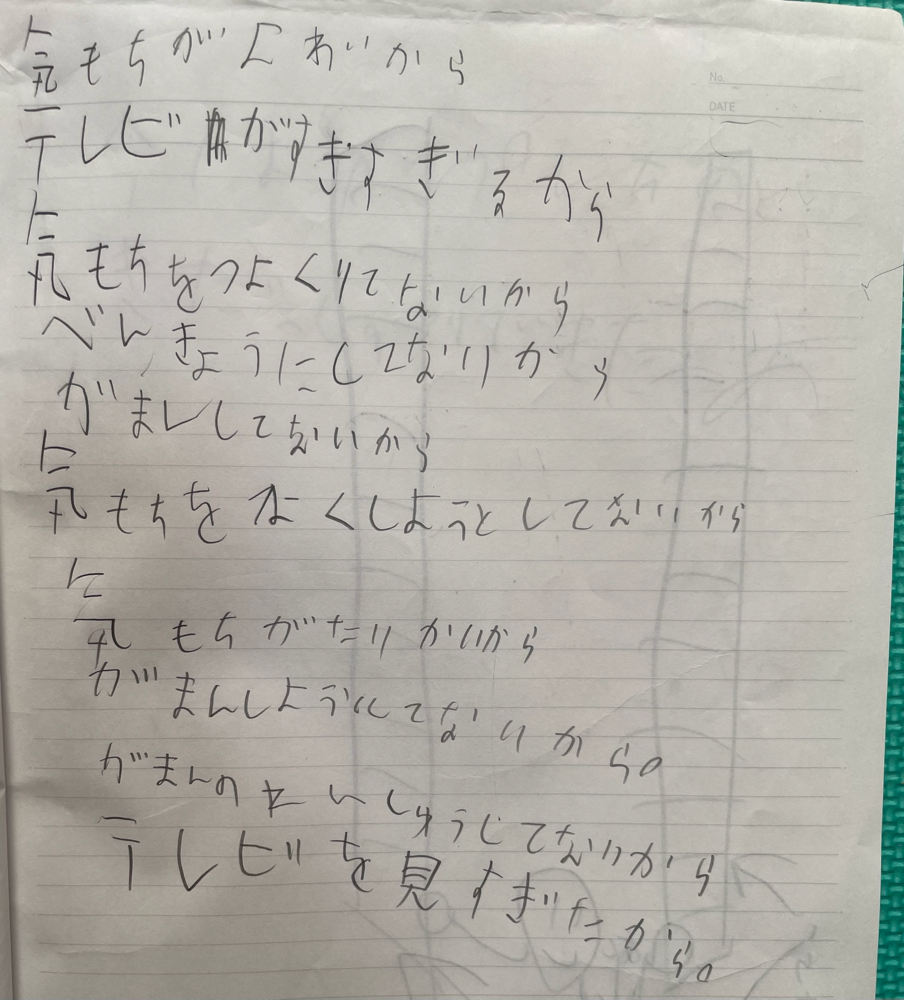 No.
DATE
気もちがよわいから
テレビがすきすぎるから
気もちをつよくしてないから
べんきょうにしてないから
がまんしてないから
気もちをよくしようとしてないから
気もちが
がまんしようにしてないから。
がまんのれんしゅうしてないから
テレビを見すぎたから。